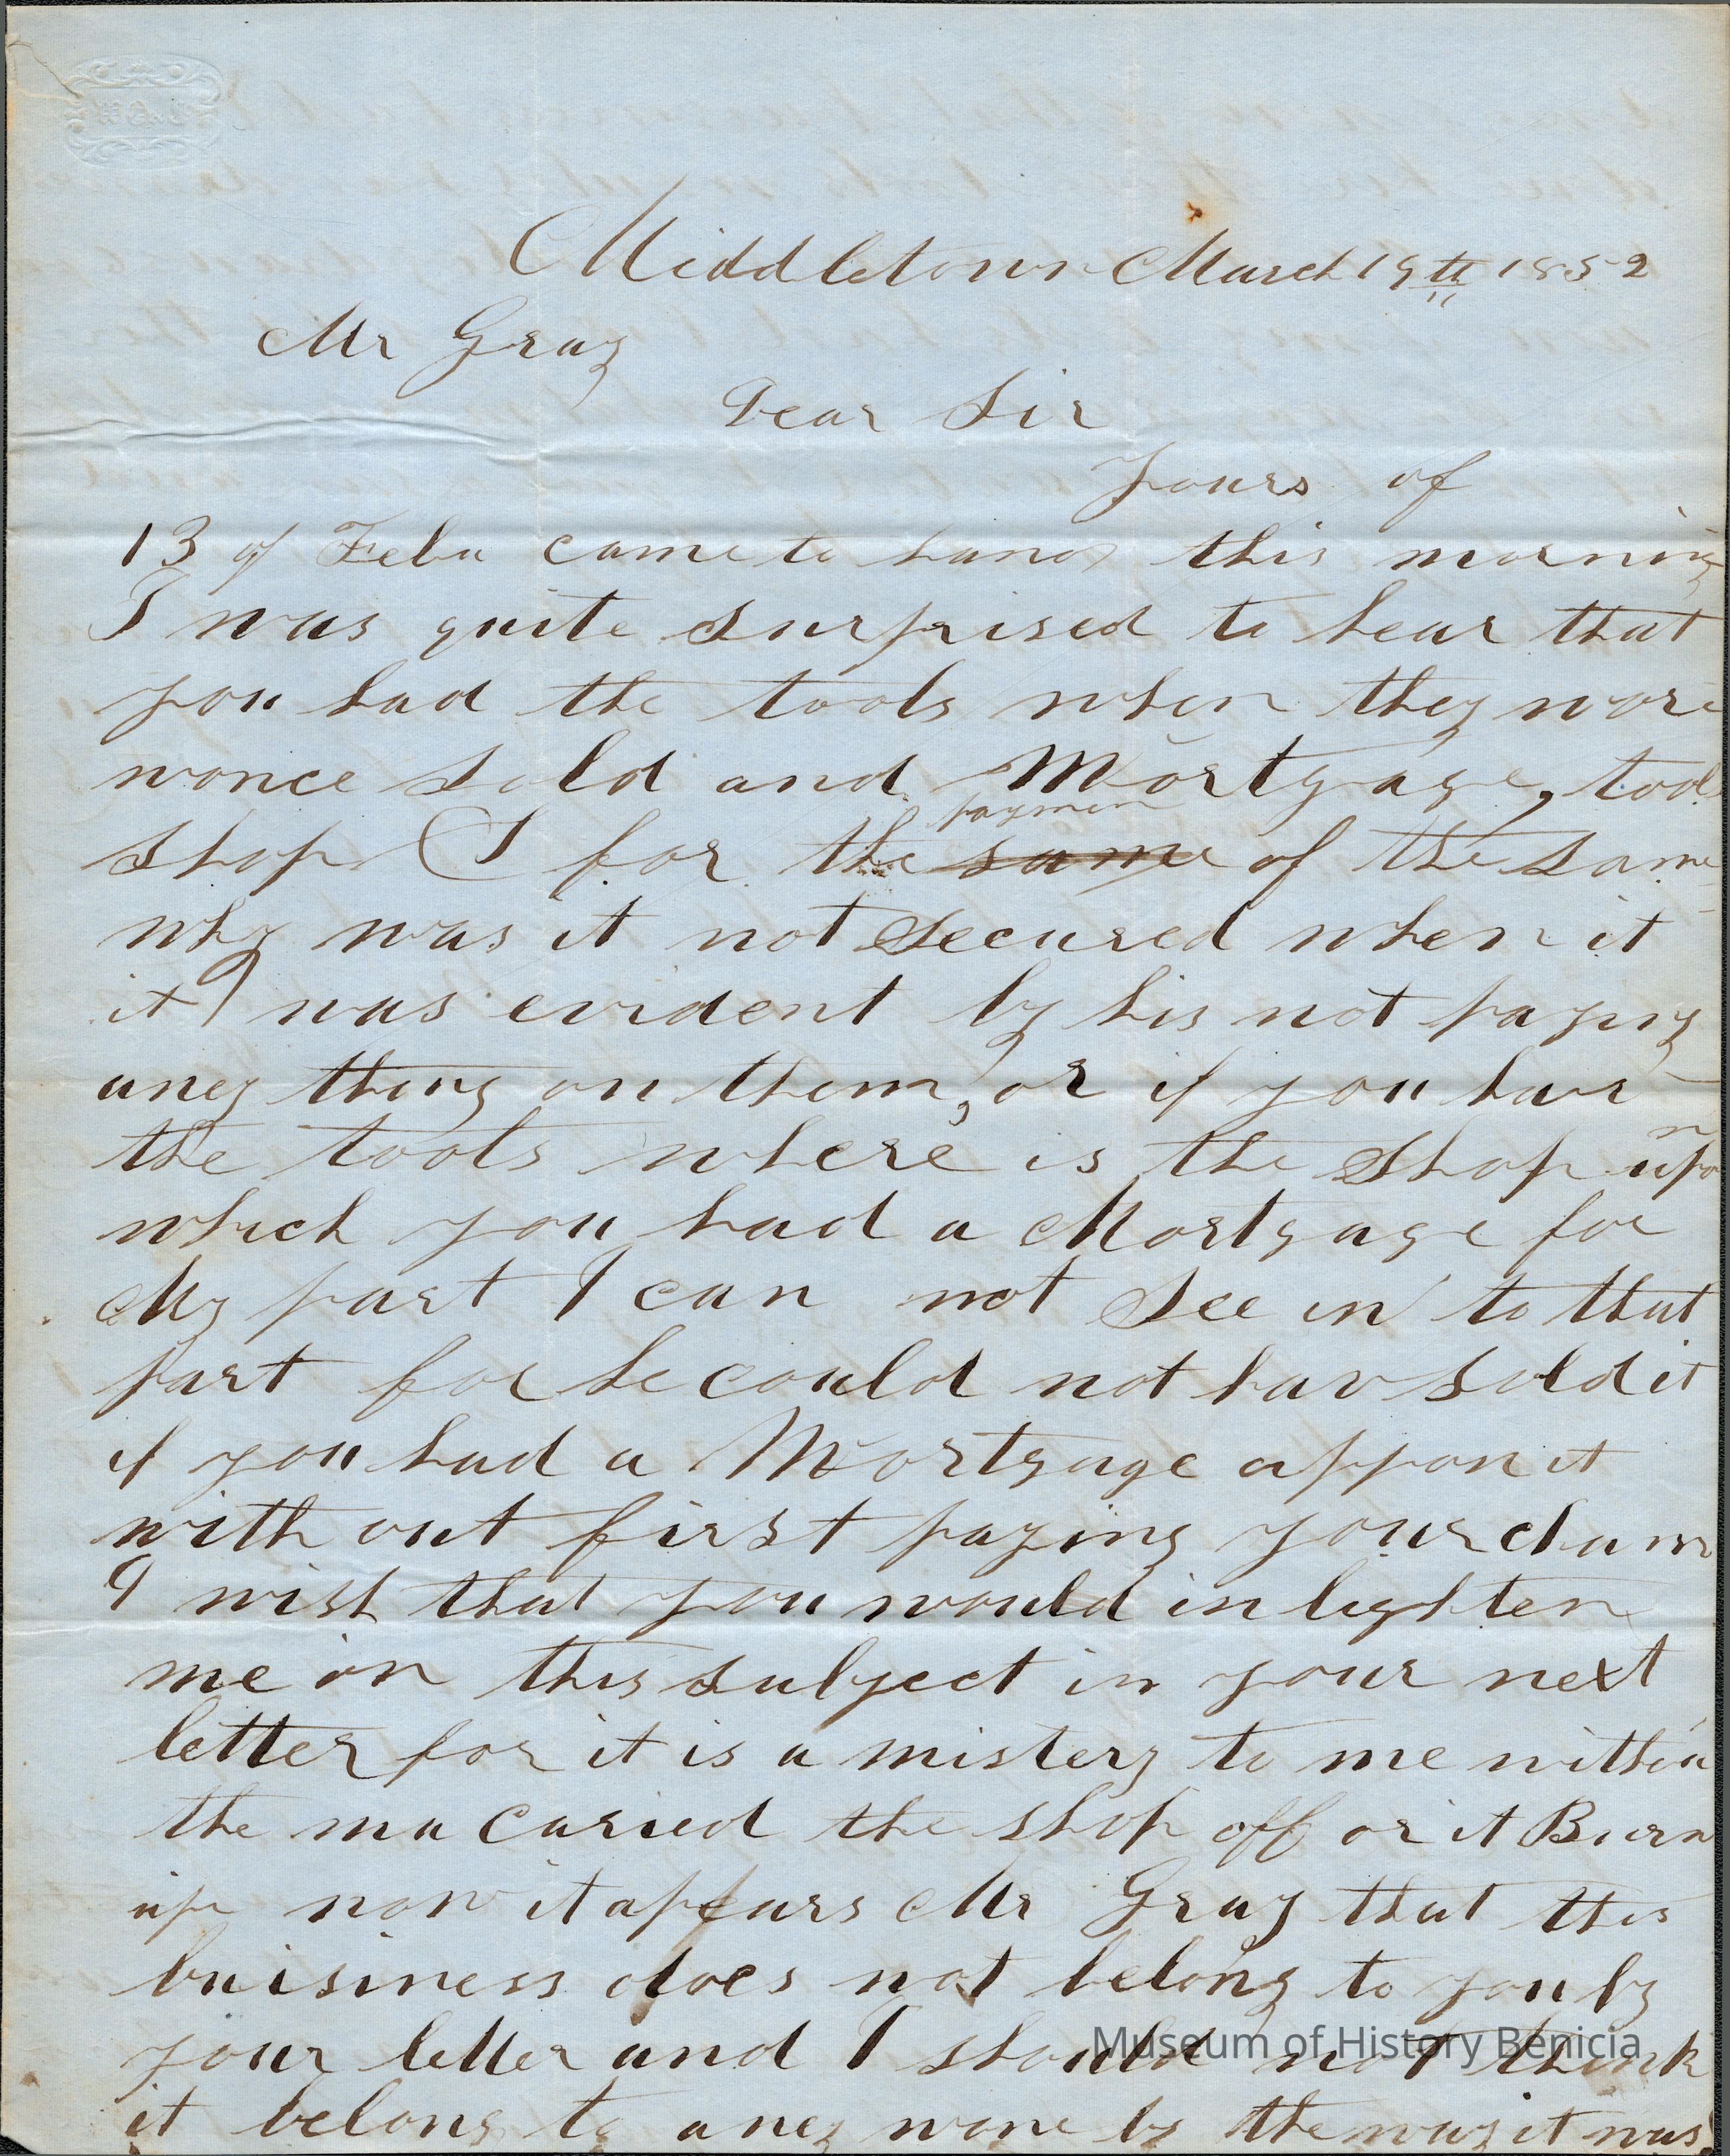 Middletown March 19th 1852
Mr Gray
Dear Sir
Yours of
13 of Febu came to hand this morning
I was quite surprised to hear that
you had the tools when they wore
wonce sold and Mortgage, tool
shop I for the same of the same
paymen
why was it not secured when it
it was evident by his not paying
aney thing on them, or if you hav
the tools where is the shop upon
which you had a Mortgage for
My part I can not see in to that
part for he could not hav sold it
if you had a Mortgage appon it
with out first paying your claim
I wish that you would in lighten
me on this subject in your next
letter for it is a mistery to me
the ma caried the shop off or it Burn
up now it apears Mr Gray that this
buisiness does not belong to you by
your letter and I should not think
it belong to aney wone by the way it was
Museum of History Benicia